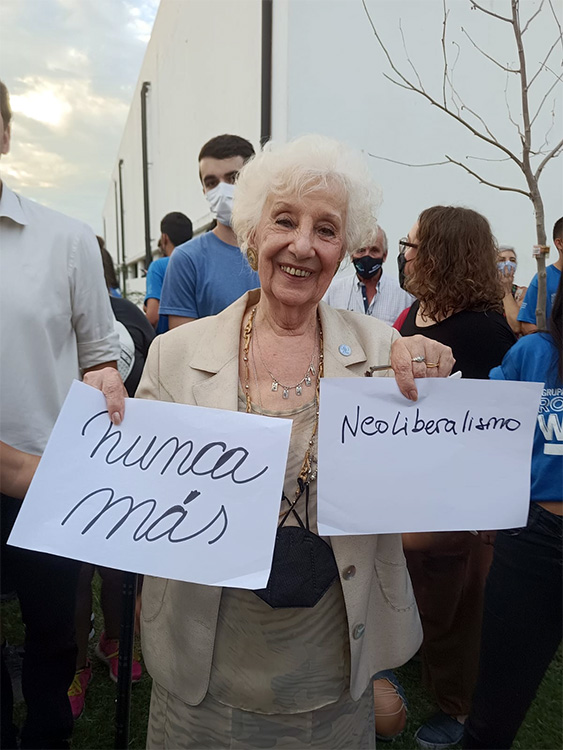 nunca
más
Neoliberalismo
GRUPO
RO
W